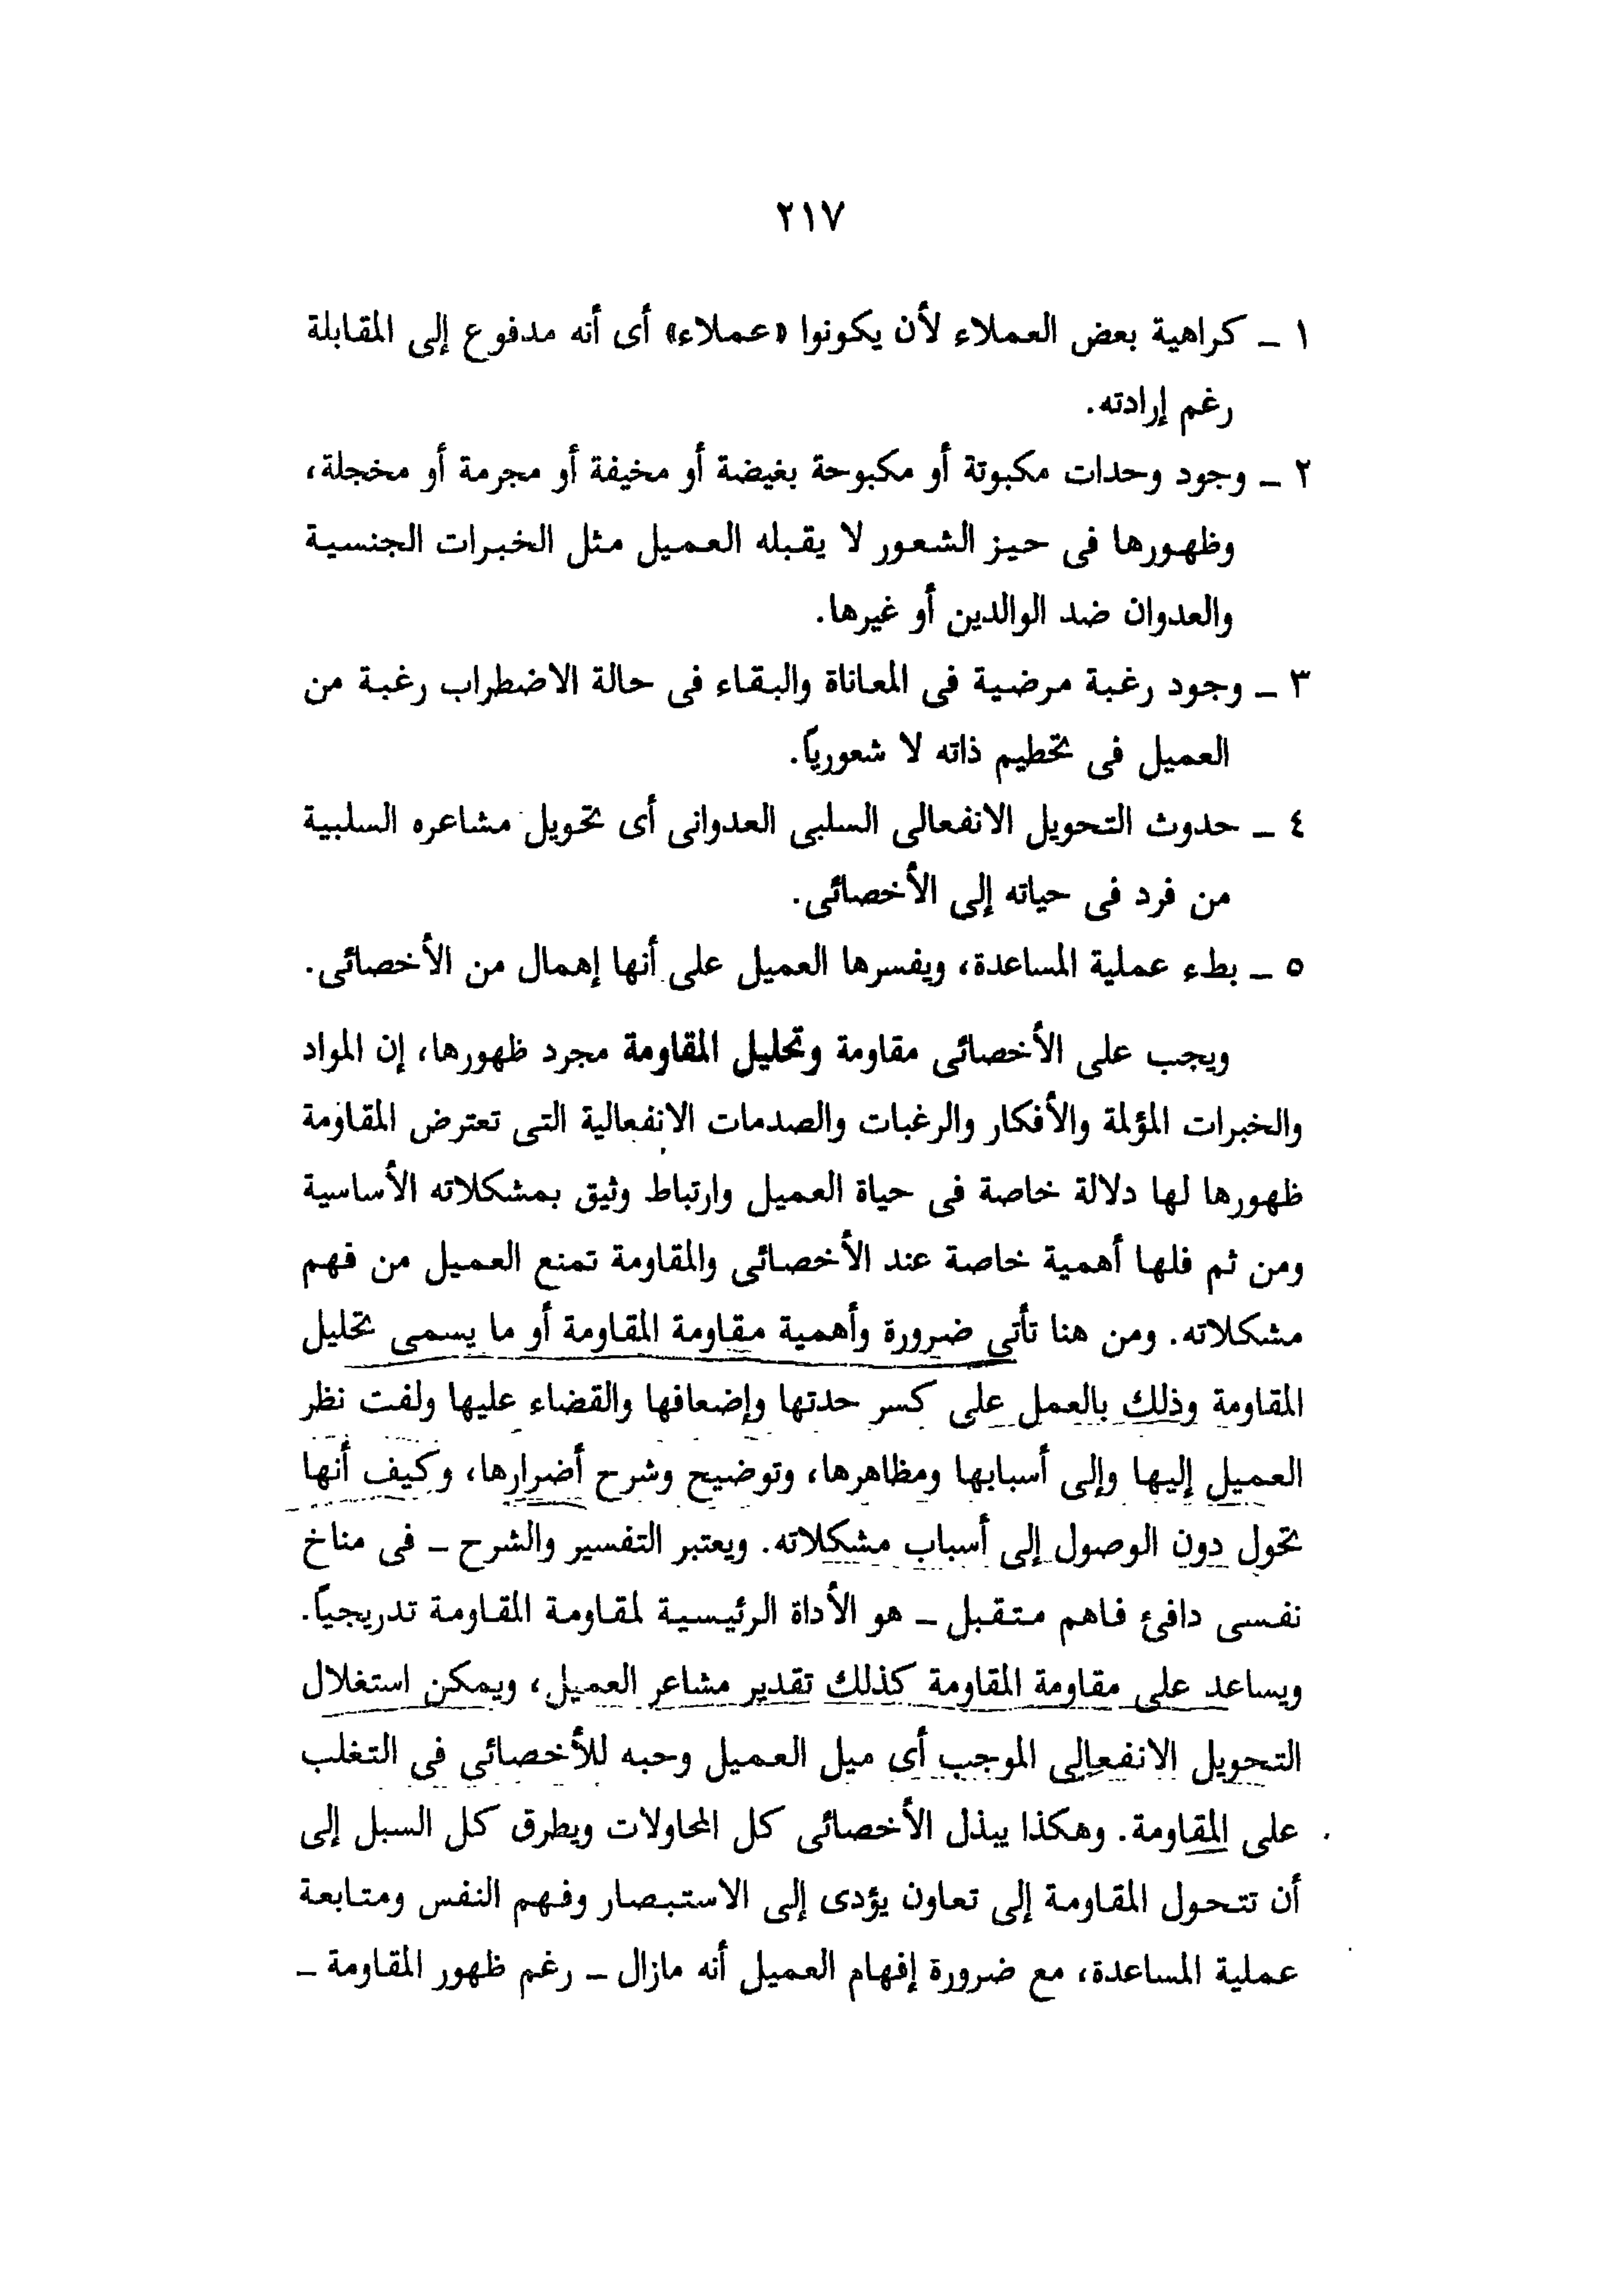 ٢١٧
١ ـ كراهية بعض العملاء لأن يكونوا «عملاء» أى أنه مدفوع إلى المقابلة
رغم إرادته.
٢ ـ وجود وحدات مكبوتة أو مكبوحة بغيضة أو مخيفة أو مجرمة أو مخجلة،
وظهورها فى حيز الشعور لا يقبله العميل مثل الخبرات الجنسية
والعدوان ضد الوالدين أو غيرها.
٣ ـ وجود رغبة مرضية فى المعاناة والبقاء فى حالة الاضطراب رغبة من
العميل فى تحطيم ذاته لا شعورياً.
٤ ـ حدوث التحويل الانفعالى السلبى العدوانى أى تحويل مشاعره السلبية
من فرد فى حياته إلى الأخصائى.
٥ ـ بطء عملية المساعدة، ويفسرها العميل على أنها إهمال من الأخصائى.
ويجب على الأخصائى مقاومة وتحليل المقاومة مجرد ظهورها، إن المواد
والخبرات المؤلمة والأفكار والرغبات والصدمات الانفعالية التى تعترض المقاومة
ظهورها لها دلالة خاصة فى حياة العميل وارتباط وثيق بمشكلاته الأساسية
ومن ثم فلها أهمية خاصة عند الأخصائى والمقاومة تمنع العميل من فهم
مشكلاته. ومن هنا تأتى ضرورة وأهمية مقاومة المقاومة أو ما يسمى تحليل
المقاومة وذلك بالعمل على كسر حدتها وإضعافها والقضاء عليها ولفت نظر
العميل إليها وإلى أسبابها ومظاهرها، وتوضيح وشرح أضرارها، وكيف أنها
تحول دون الوصول إلى أسباب مشكلاته. ويعتبر التفسير والشرح ـ فى مناخ
نفسى دافئ فاهم متقبل ـ هو الأداة الرئيسية لمقاومة المقاومة تدريجياً.
ويساعد على مقاومة المقاومة كذلك تقدير مشاعر العميل، ويمكن استغلال
التحويل الانفعالى الموجب أى ميل العميل وحبه للأخصائى فى التغلب
على المقاومة. وهكذا يبذل الأخصائى كل المحاولات ويطرق كل السبل إلى
أن تتحول المقاومة إلى تعاون يؤدى إلى الاستبصار وفهم النفس ومتابعة
عملية المساعدة، مع ضرورة إفهام العميل أنه مازال ـ رغم ظهور المقاومة ـ